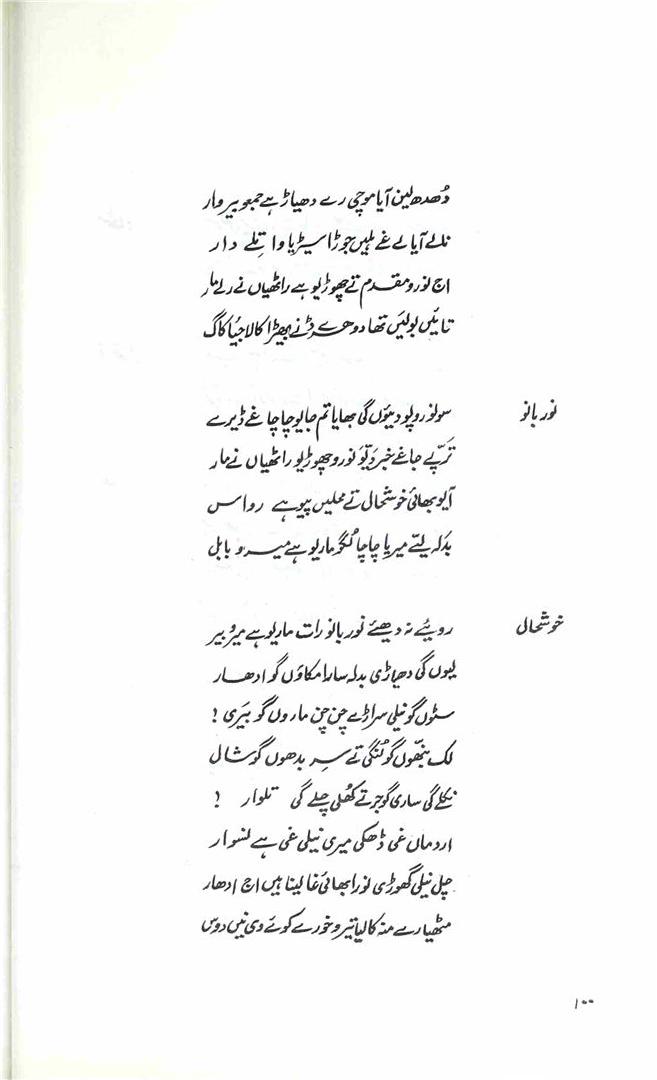 دُھدھ لین آیا موچی رے دھیاڑ ہے جمعو بیروار
نالے آیا لے غے ہلیں جوڑا سیڑیا وا تِلے دار
اج نورو مقدم تے چھوڑیو ہے راٹھیاں نے رلے مار
تائیں بولئیں تھا دوھرے ڈنے بھیڑا کالا جیُا کاگ
نور بانو
سو نورو پو دیئوں گی بھایا تم جایو چاچا غے ڈیرے
ترَپے جاغے خبر دیّو نورو چھوڑیو راٹھیاں نے مار
آیو بھائی خوشحالی تے محلیں پیو ہے رواس
بدلہ لیئے میریا چاچا لُگو ماریو ہے میرو بابل
خوشحالی
رویئے نہ دھیئے نور بانو رات ماریو ہے میرو بیر
لیوں گی دھیاڑی بدلہ سارا مکاؤں گو ادھار
سٹوں گو نیلی سراڑے چن چن ماروں گو بَیری !
لک بنھّوں گو لنگی تے سِر بدھوں گو شال
نکلے گی ساری گوجر تے کھُلی چلے گی تلوار !
ارد ماں غی ڈھکی میری نیلی غی ہے لسوار
چل نیلی گھوڑی نورا بھائی غا لینا ہیں اج ادھار
مٹھیارے منہ کالیا تیرو خورے کوئے وی نیں دوس
۱۰۰